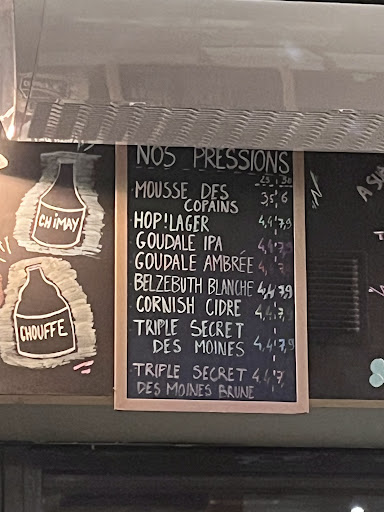 NOS PRESSIONS
25 50
MOUSSE DES
COPAINS 3,5 6
HOP!LAGER 4,4 7,9
GOUDALE IPA 4,4 7,9
GOUDALE AMBRÉE 4, 7
BELZEBUTH BLANCHE 4,4 7,9
CORNISH CIDRE 4,4 7,
TRIPLE SECRET
DES MOINES 4,4 7,9
TRIPLE SECRET 4,4 7,
DES MOINES BRUNE
CHIMAY
CHOUFFE